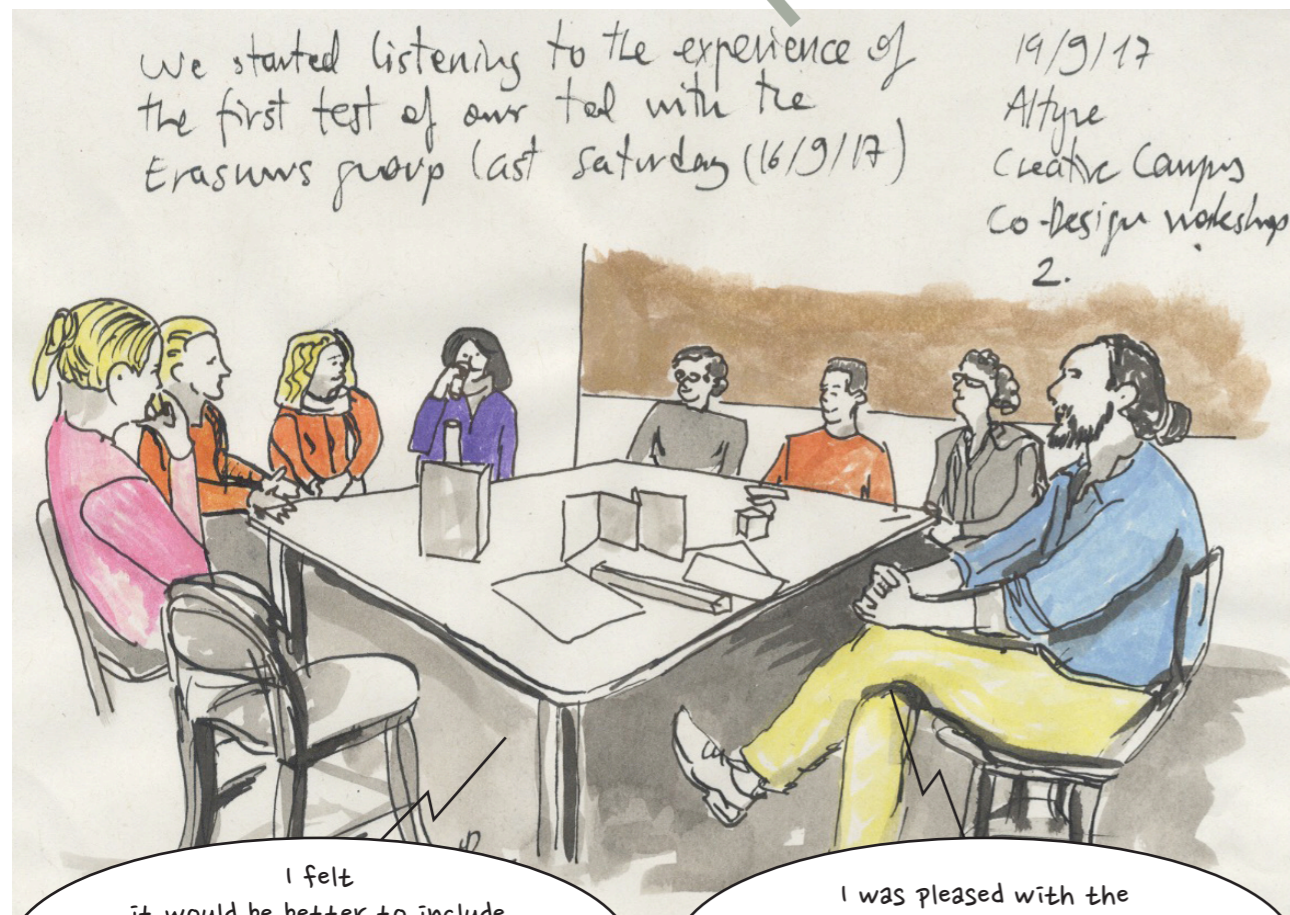 We started listening to the experience of
the first test of our tool with the
Erasmus group last Saturday (16/9/17)
19/9/17
Altyre
Creative Campus
Co-Design workshop
2.
I felt
it would be better to include
I was pleased with the